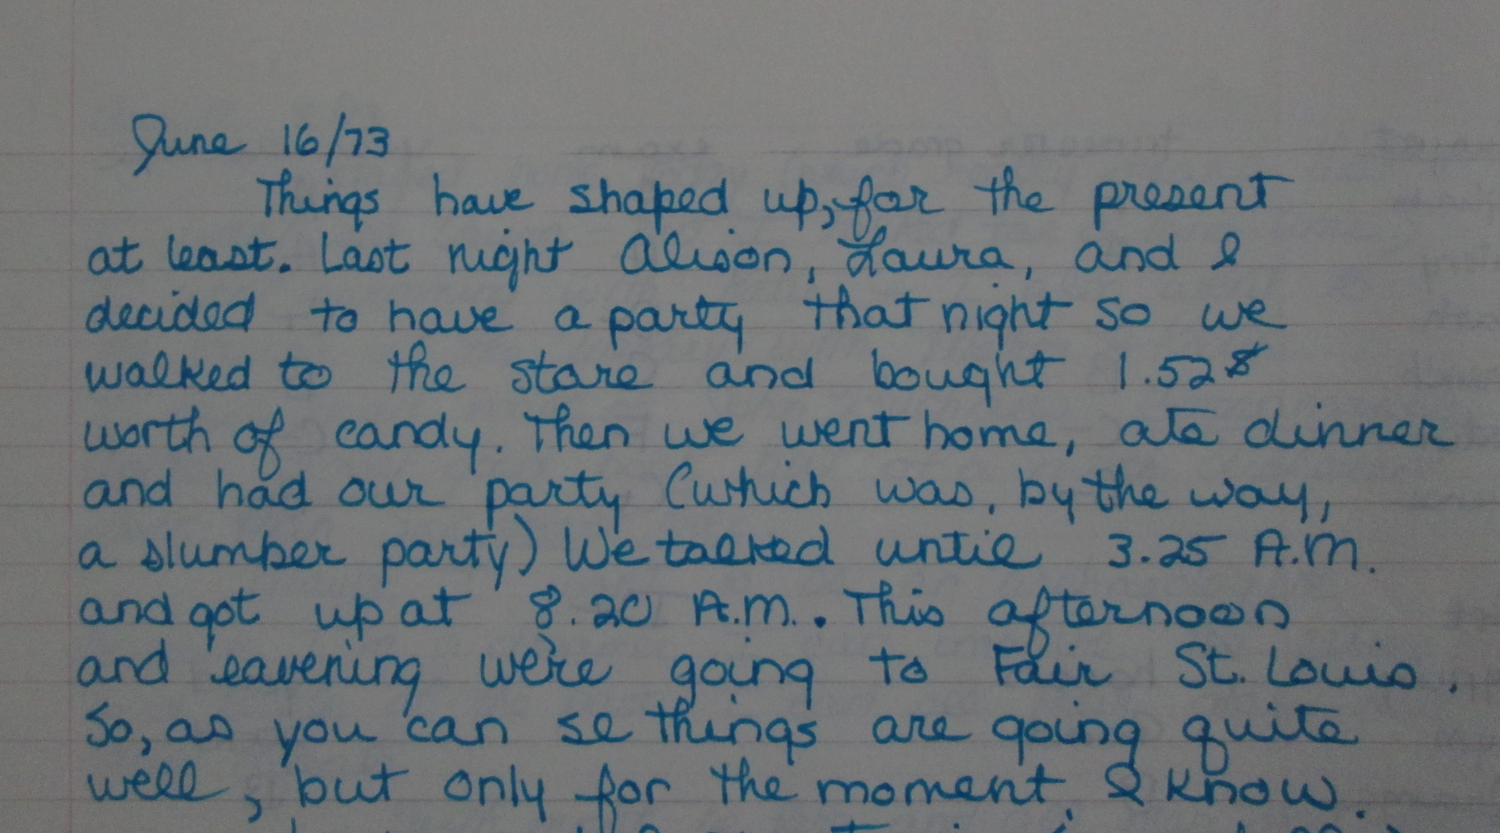 June 16/73
Things have shaped up, for the present
at least. Last night Alison, Laura, and I
decided to have a party that night so we
walked to the store and bought 1.52$
worth of candy. Then we went home, ate dinner
and had our party (which was, by the way,
a slumber party) We talked until 3.25 A.M.
and got up at 8.20 A.M.. This afternoon
and eavening we're going to Fair St. Louis.
So, as you can se things are going quite
well, but only for the moment, I know.